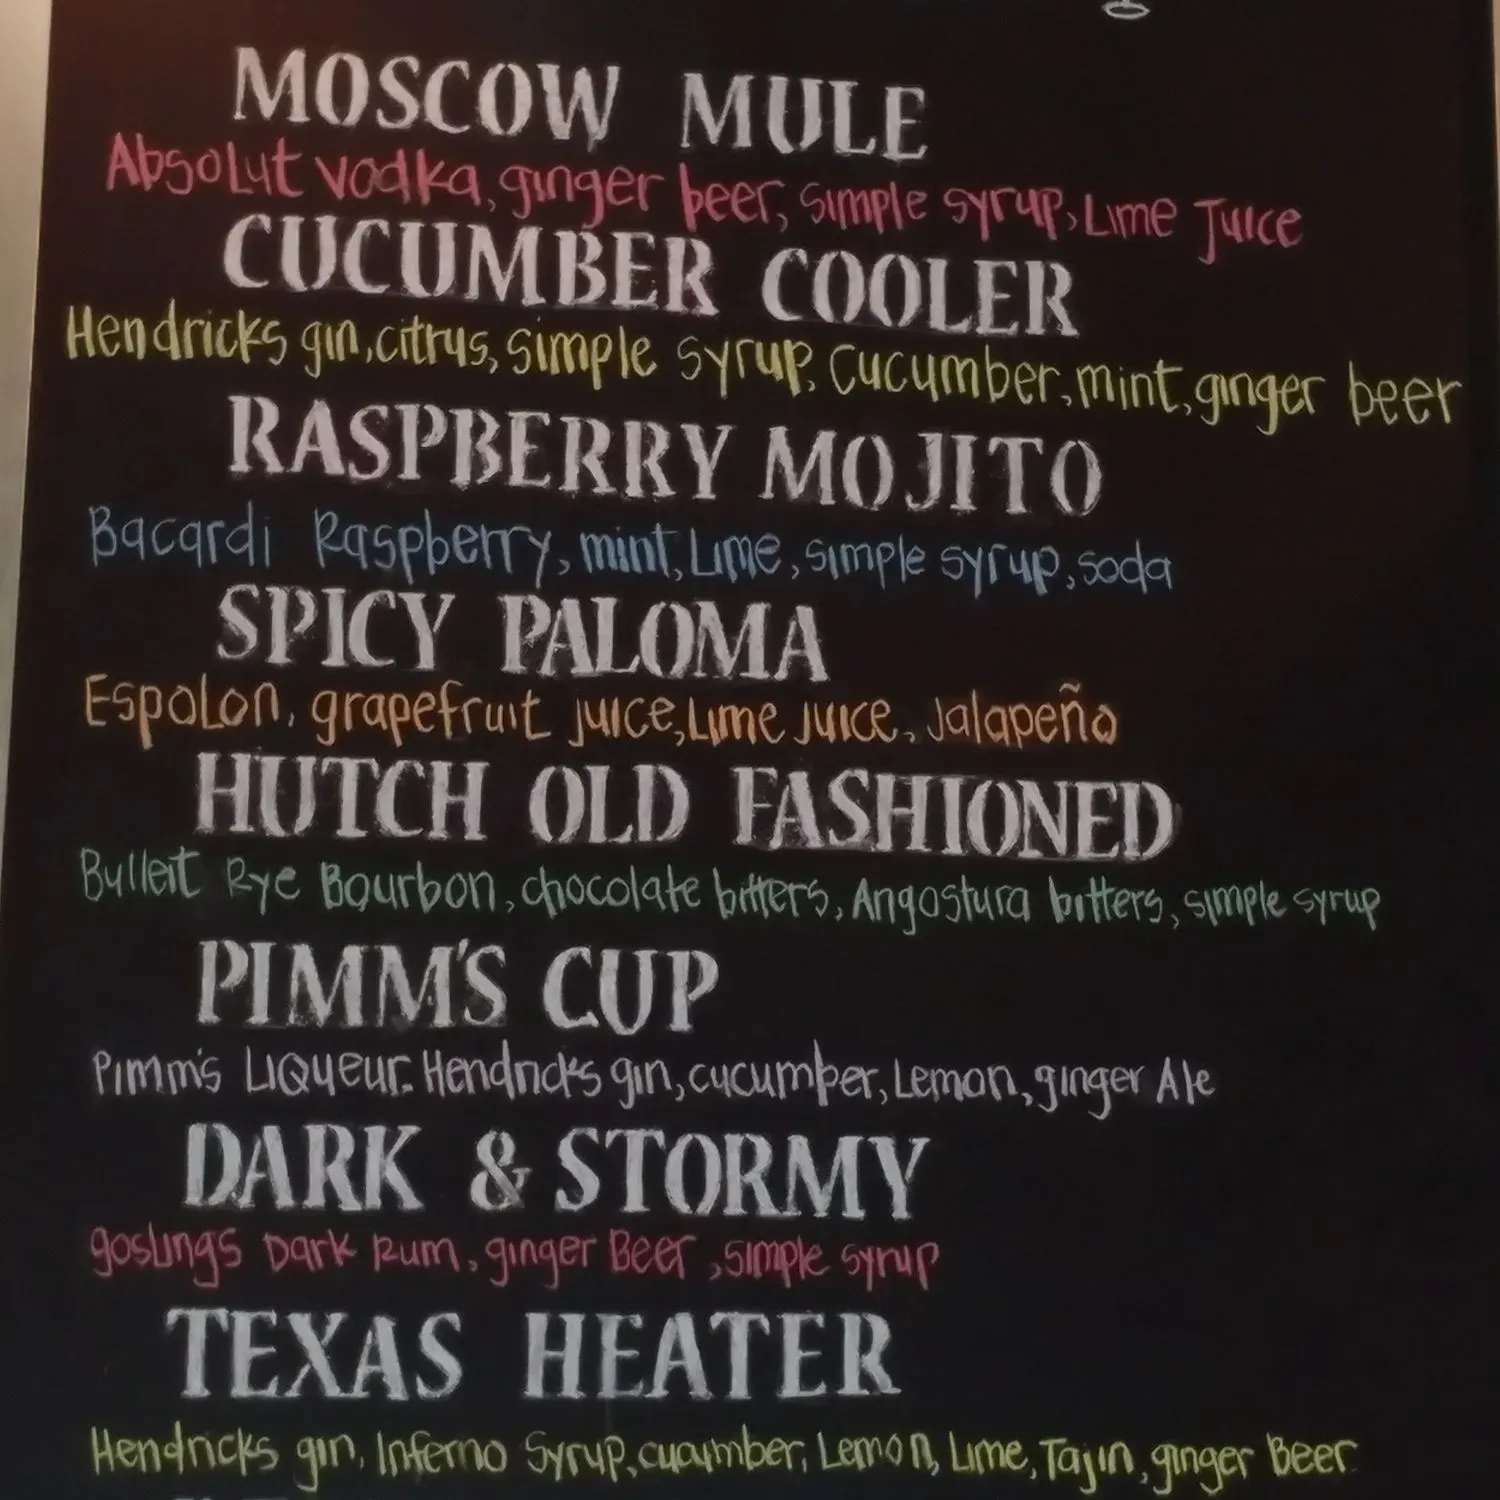 MOSCOW MULE
Absolut vodka, ginger beer, simple syrup, Lime Juice
CUCUMBER COOLER
Hendricks gin, citrus, simple syrup, cucumber, mint, ginger beer
RASPBERRY MOJITO
Bacardi Raspberry, mint, Lime, simple syrup, soda
SPICY PALOMA
Espolon, grapefruit juice, Lime juice, jalapeño
HUTCH OLD FASHIONED
Bulleit Rye Bourbon, chocolate bitters, Angostura bitters, simple syrup
PIMM'S CUP
Pimm's Liqueur. Hendricks gin, cucumber, Lemon, ginger Ale
DARK & STORMY
goslings Dark Rum, ginger Beer, simple syrup
TEXAS HEATER
Hendricks gin, Inferno Syrup, cucumber, Lemon, Lime, Tajin, ginger Beer